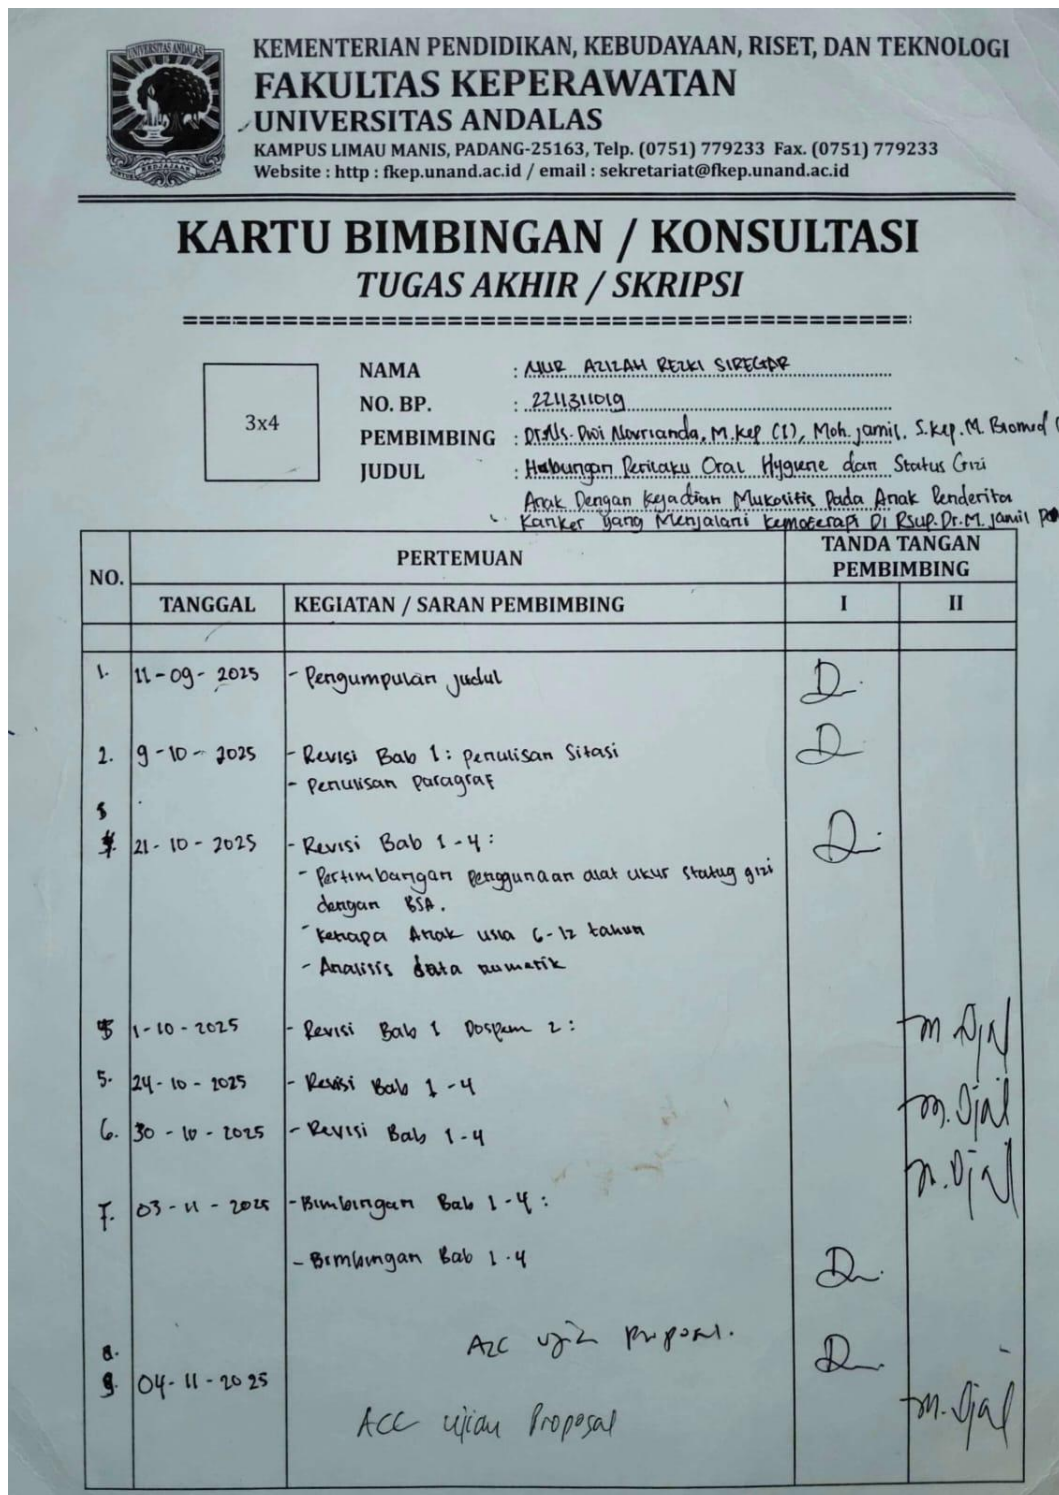 UNIVERSITAS ANDALAS
KEMENTERIAN PENDIDIKAN, KEBUDAYAAN, RISET, DAN TEKNOLOGI
FAKULTAS KEPERAWATAN
UNIVERSITAS ANDALAS
KAMPUS LIMAU MANIS, PADANG-25163, Telp. (0751) 779233 Fax. (0751) 779233
Website : http : fkep.unand.ac.id / email : sekretariat@fkep.unand.ac.id
KARTU BIMBINGAN / KONSULTASI
TUGAS AKHIR / SKRIPSI
3x4
NAMA : NUR AZIZAH REZKI SIREGAR
NO. BP. : 2211311019
PEMBIMBING : Dr.Ns. Dwi Novrianda, M.Kep (I), Moh. Jamil, S.Kep. M. Biomed (
JUDUL : Hubungan Perilaku Oral Hygiene dan Status Gizi
Anak Dengan Kejadian Mukositis Pada Anak Penderita
Kanker yang Menjalani Kemoterapi Di Rsup. Dr. M. Jamil
NO. PERTEMUAN TANDA TANGAN PEMBIMBING
TANGGAL KEGIATAN / SARAN PEMBIMBING I II
1. 11-09-2025 - Pengumpulan judul
2. 9-10-2025 - Revisi Bab 1: Penulisan Sitasi
- Penulisan Paragraf
3 21-10-2025 - Revisi Bab 1-4:
- Pertimbangan Penggunaan alat ukur status gizi
dengan BSA.
- Kenapa Anak usia 6-12 tahun
- Analisis data numerik
1-10-2025 - Revisi Bab 1 Dospem 2: m. Djal
5. 24-10-2025 - Revisi Bab 1-4 m. Djal
6. 30-10-2025 - Revisi Bab 1-4 m. Djal
7. 03-11-2025 - Bimbingan Bab 1-4:
- Bimbingan Bab 1-4
8. Acc ujian proposal.
9. 04-11-2025
ACC Ujian Proposal m. Djal